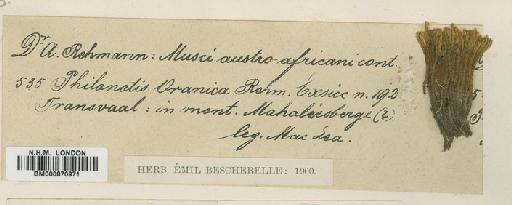 Dr A. Rehmann: Musci austro-africani cont.
535 Philonotis Oranica Rehm. Exsicc n. 192
Transvaal: in mont. Mahaleesberge (?)
leg. Mac Lea.
N.H.M. LONDON
BM000870971
HERB. ÉMIL BESCHERELLE: 1900.